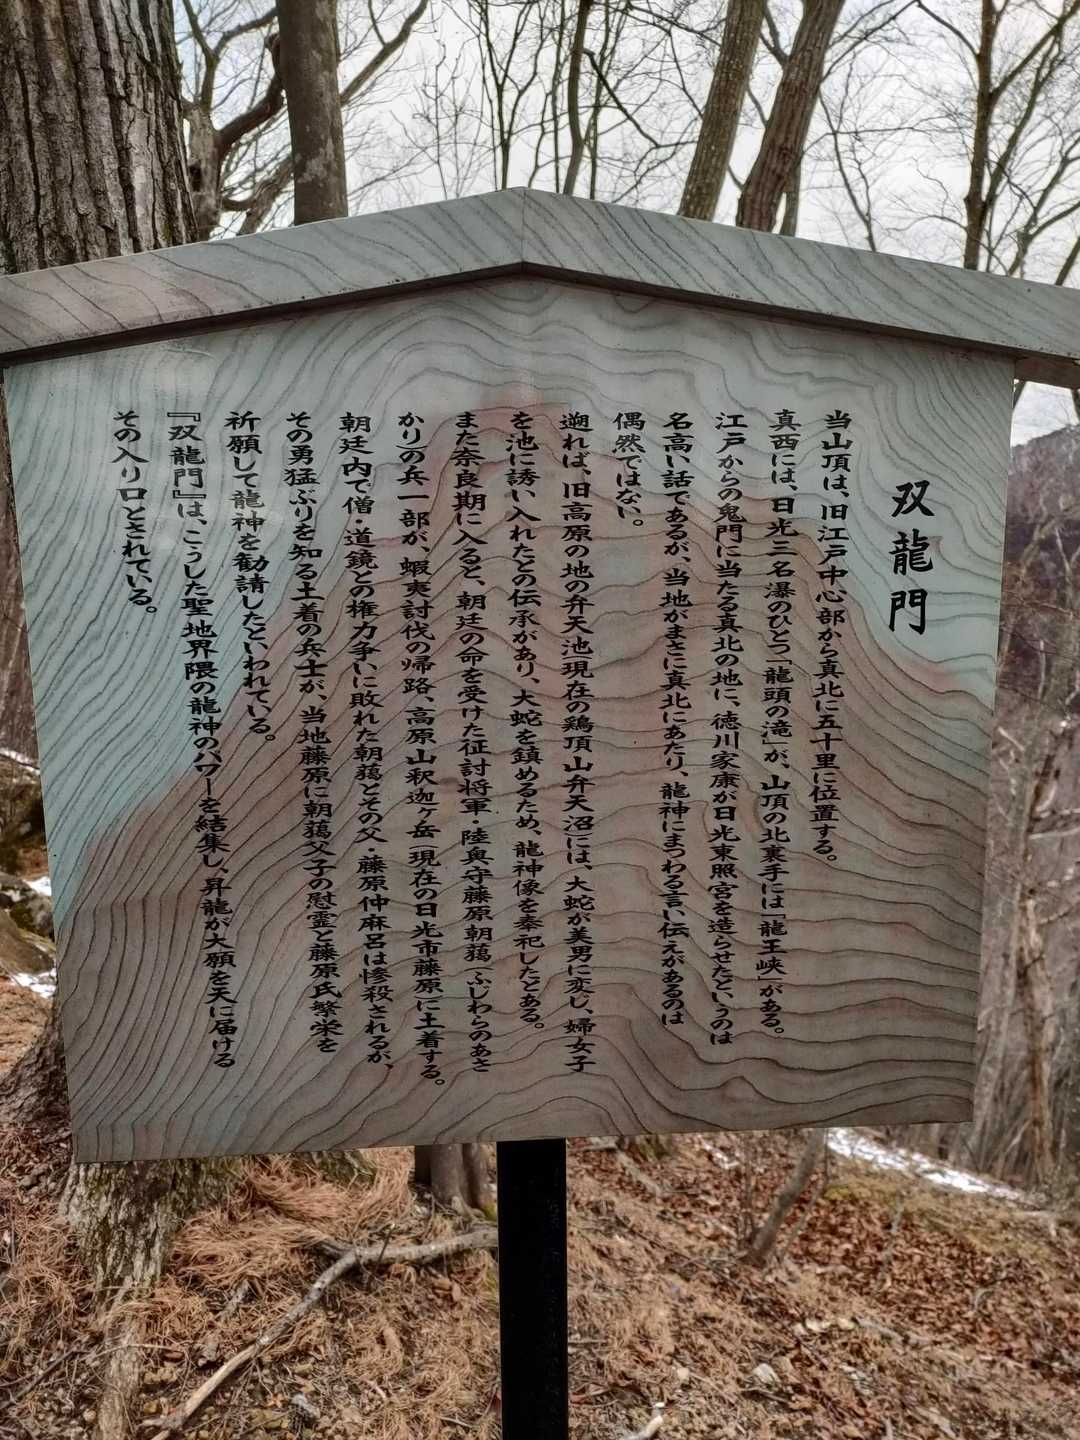 双龍門
当山頂は、旧江戸中心部から真北に五十里に位置する。
真西には、日光三名瀑のひとつ「龍頭の滝」が、山頂の北裏手には「龍王峡」がある。
江戸からの鬼門に当たる真北の地に、徳川家康が日光東照宮を造らせたというのは
名高い話であるが、当地がまさに真北にあたり、龍神にまつわる言い伝えがあるのは
偶然ではない。
遡れば、旧高原の地の弁天池(現在の鶏頂山弁天沼)には、大蛇が美男に変じ、婦女子
を池に誘い入れたとの伝承があり、大蛇を鎮めるため、龍神像を奉祀したとある。
また奈良期に入ると、朝廷の命を受けた征討将軍・陸奥守藤原朝蕩(ふじわらのあさ
かり)の兵一部が、蝦夷討伐の帰路、高原山釈迦ヶ岳(現在の日光市藤原)に土着する。
朝廷内で僧・道鏡との権力争いに敗れた朝蕩とその父・藤原仲麻呂は惨殺されるが、
その勇猛ぶりを知る土着の兵士が、当地藤原に朝蕩父子の慰霊と藤原氏繁栄を
祈願して龍神を勧請したといわれている。
『双龍門』は、こうした聖地界隈の龍神のパワーを結集し、昇龍が大願を天に届ける
その入り口とされている。